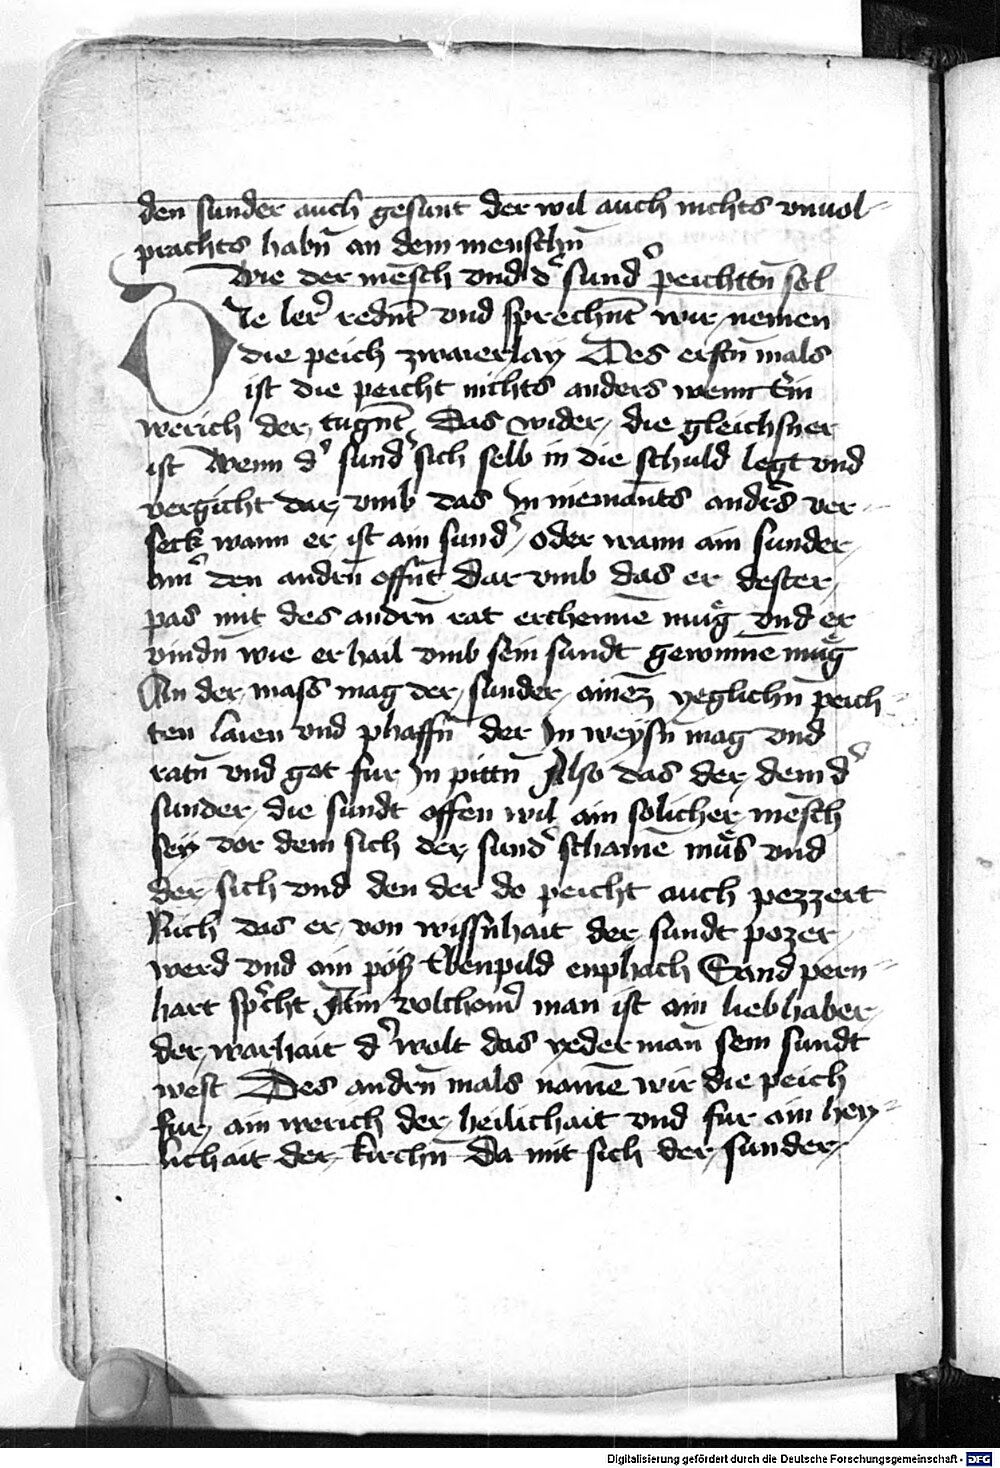 den sunder auch gesunt der wil auch nichts vnuol-
prachts habn̄ an dem menschn̄
Wie der mēsch vnd d' sund' peichttn̄ sol
Die ler' rednt̄ vnd sprechnt̄ wir nemen
die peich zwaierlay Des erstn̄ mals
ist die peicht nichts anders wenn Ein
werich der tugnt̄ Das wider die gleichsner
ist Wenn d' sund' sich selb in die schuld legt vnd
vergicht dar vmb das In niemant̄s andrs̄ ver
seck wann er ist ain sund' oder wann ain sunder
den andrn̄ offnt̄ Dar vmb das er dester
pas mit des andrn̄ rat erchennē mug vnd er
vindn̄ wie er hail vmb sein sundt gewinnē mug
In der mass mag der sunder ainē yeglichn̄ peich-
ten laien vnd phaffn̄ der In weysn̄ mag vnd
ratn̄ vnd got fur In pittn̄ Also das der dem d'
sunder die sundt offen wil ain solicher mēsch
sey vor dem sich der sund' schamē müs vnd
der sich vnd den der do peicht auch pezzert
Nich das er von wissn̄hait der sundt pozer
werd vnd ain pös Ebenpild enphach Sand pern-
hart sp'cht Ain volchom̄ man ist ain liebhaber
der warhait d' wolt das yeder man̄ sein sundt
west Des andrn̄ mals namē wir die peich
fur ain werich der heilichait vnd fur ain hey-
lichait der kirchn̄ Da mit sich der sunder
Digitalisierung gefördert durch die Deutsche Forschungsgemeinschaft - DFG